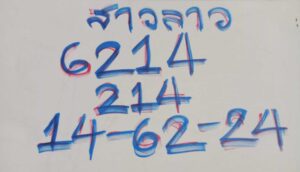 สาวลาว
6214
214
14-62-24